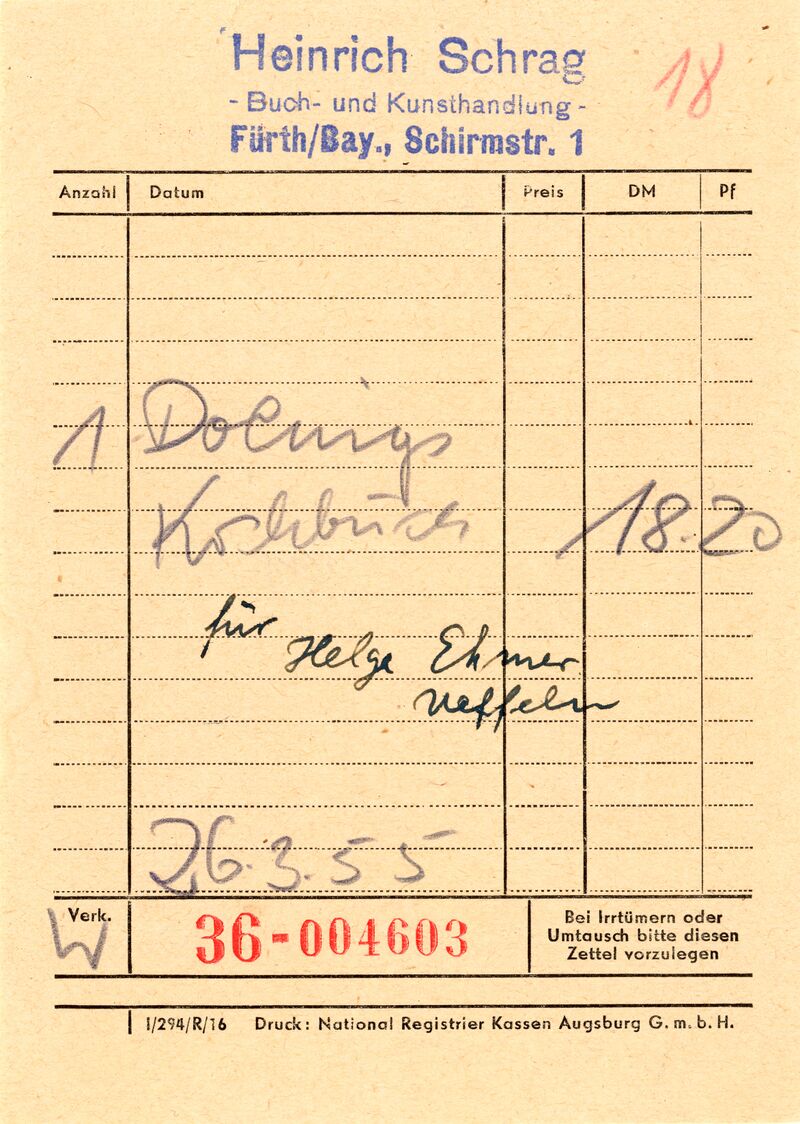 Heinrich Schrag
- Buch- und Kunsthandlung -
Fürth/Bay., Schirmstr. 1
18
Anzahl Datum Preis DM Pf
1 Dolnigs
Kochbuch 18.20
für
Helga Ehmer
26.3.55
Verk.
W
36-004603
Bei Irrtümern oder
Umtausch bitte diesen
Zettel vorzulegen
I/294/R/16 Druck: National Registrier Kassen Augsburg G.m.b.H.